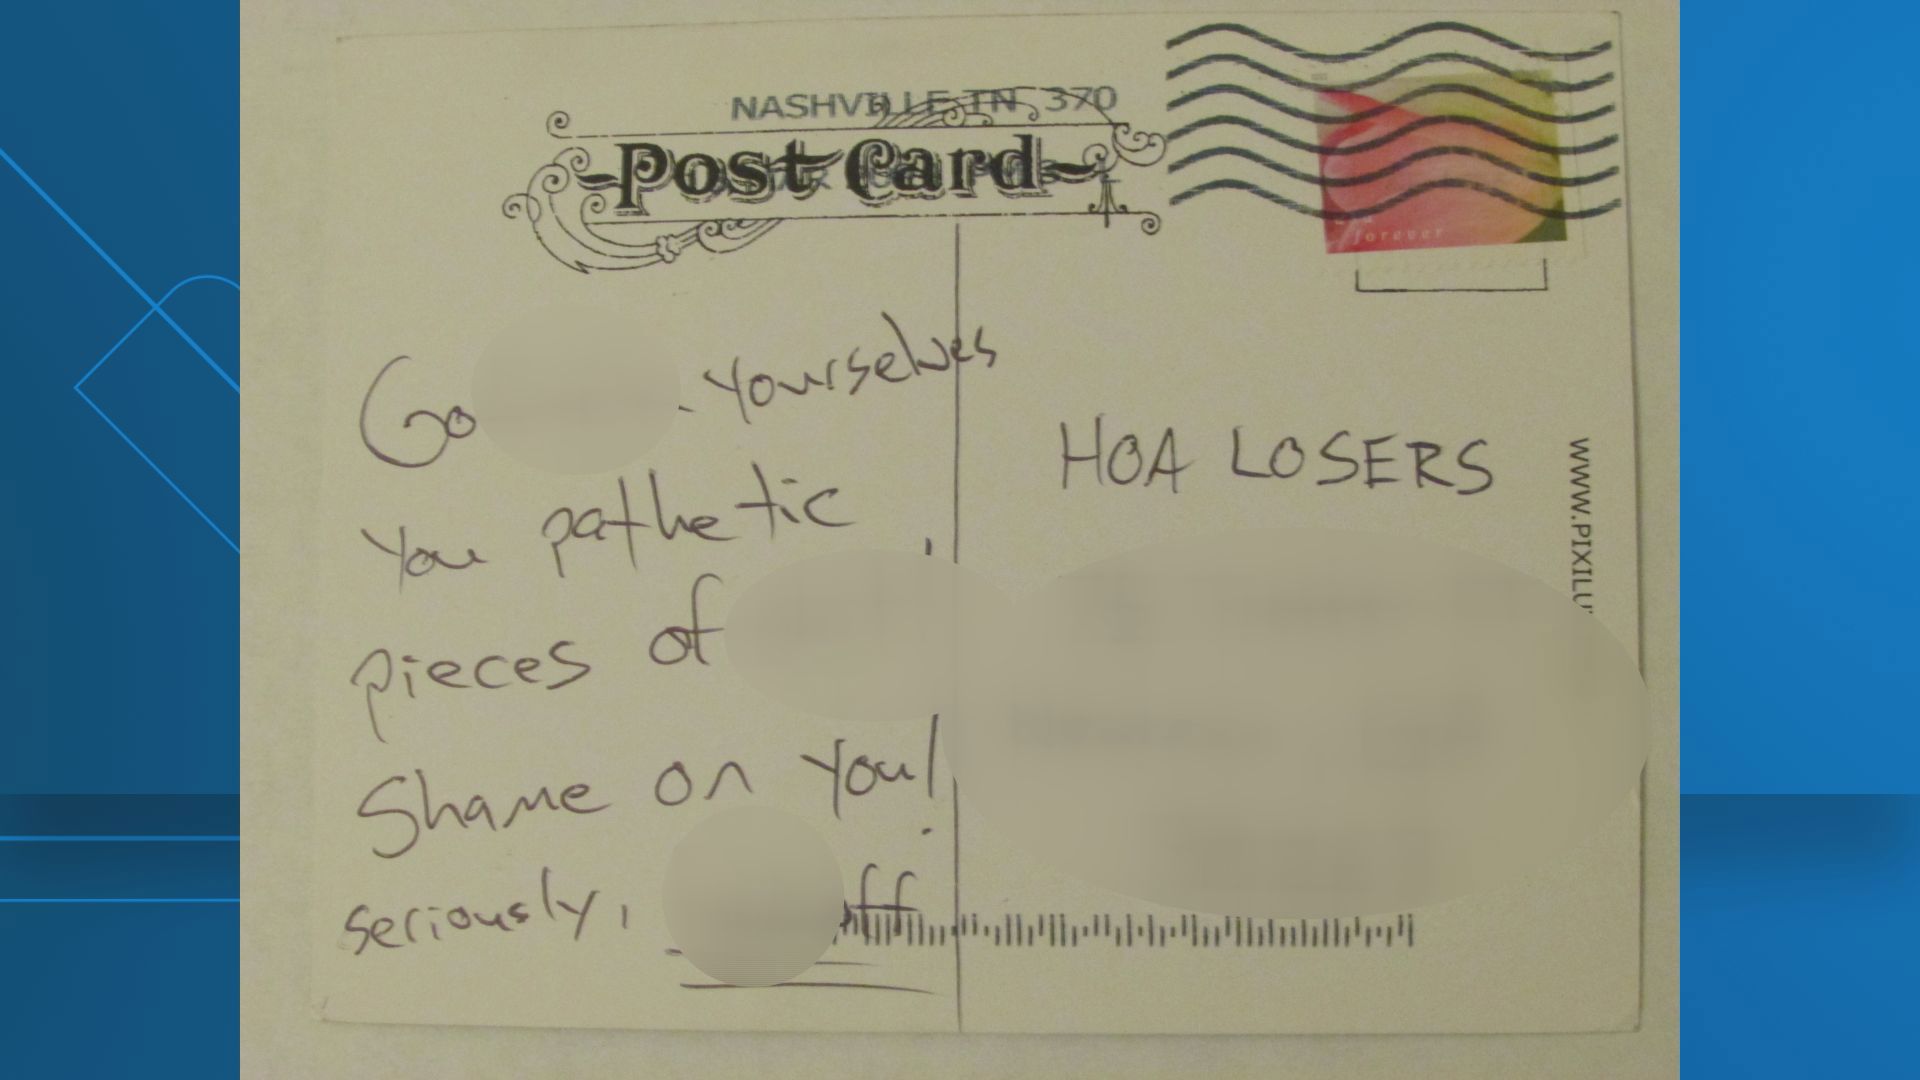 NASHVILLE TN 370
Post Card
forever
Go yourselves
You pathetic
pieces of
Shame on you!
seriously, off
HOA LOSERS
WWW.PIXILU